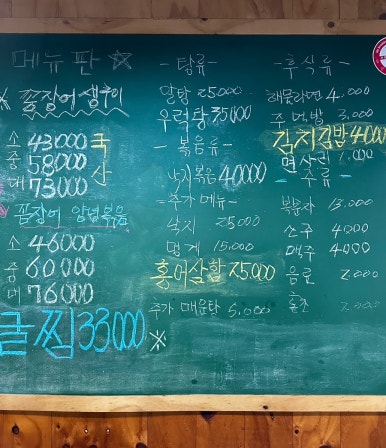 메뉴판☆
※ 꼼장어 생구이
소 43000 국산
중 58000
대 73000
꼼장어 양념볶음
소 46000
중 60000
대 76000
굴찜 33000
- 탕류 -
알탕 25000
우럭탕 35000
- 볶음류 -
낙지볶음 40000
- 추가 메뉴 -
낙지 25000
멍게 15.000
홍어삼합 75000
추가 매운탕 5.000
※
- 후식류 -
해물라면 4.000
주먹밥 3.000
김치김밥 4000
면사리 1.000
- 주류 -
복분자 13.000
소주 4000
맥주 4000
음료 2.000